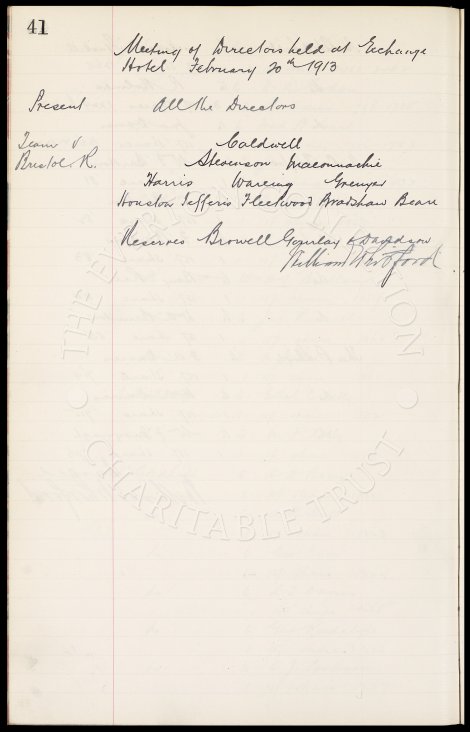 41
Meeting of Directors held at Exchange
Hotel February 20th 1913
Present All the Directors
Team v
Bristol R.
Caldwell
Stevenson Maconnachie
Harris Wareing Grenyer
Houston Jefferis Fleetwood Bradshaw Beare
Reserves Browell Gourlay & Davidson
William Whitford
THE EVERTON COLLECTION
CHARITABLE TRUST